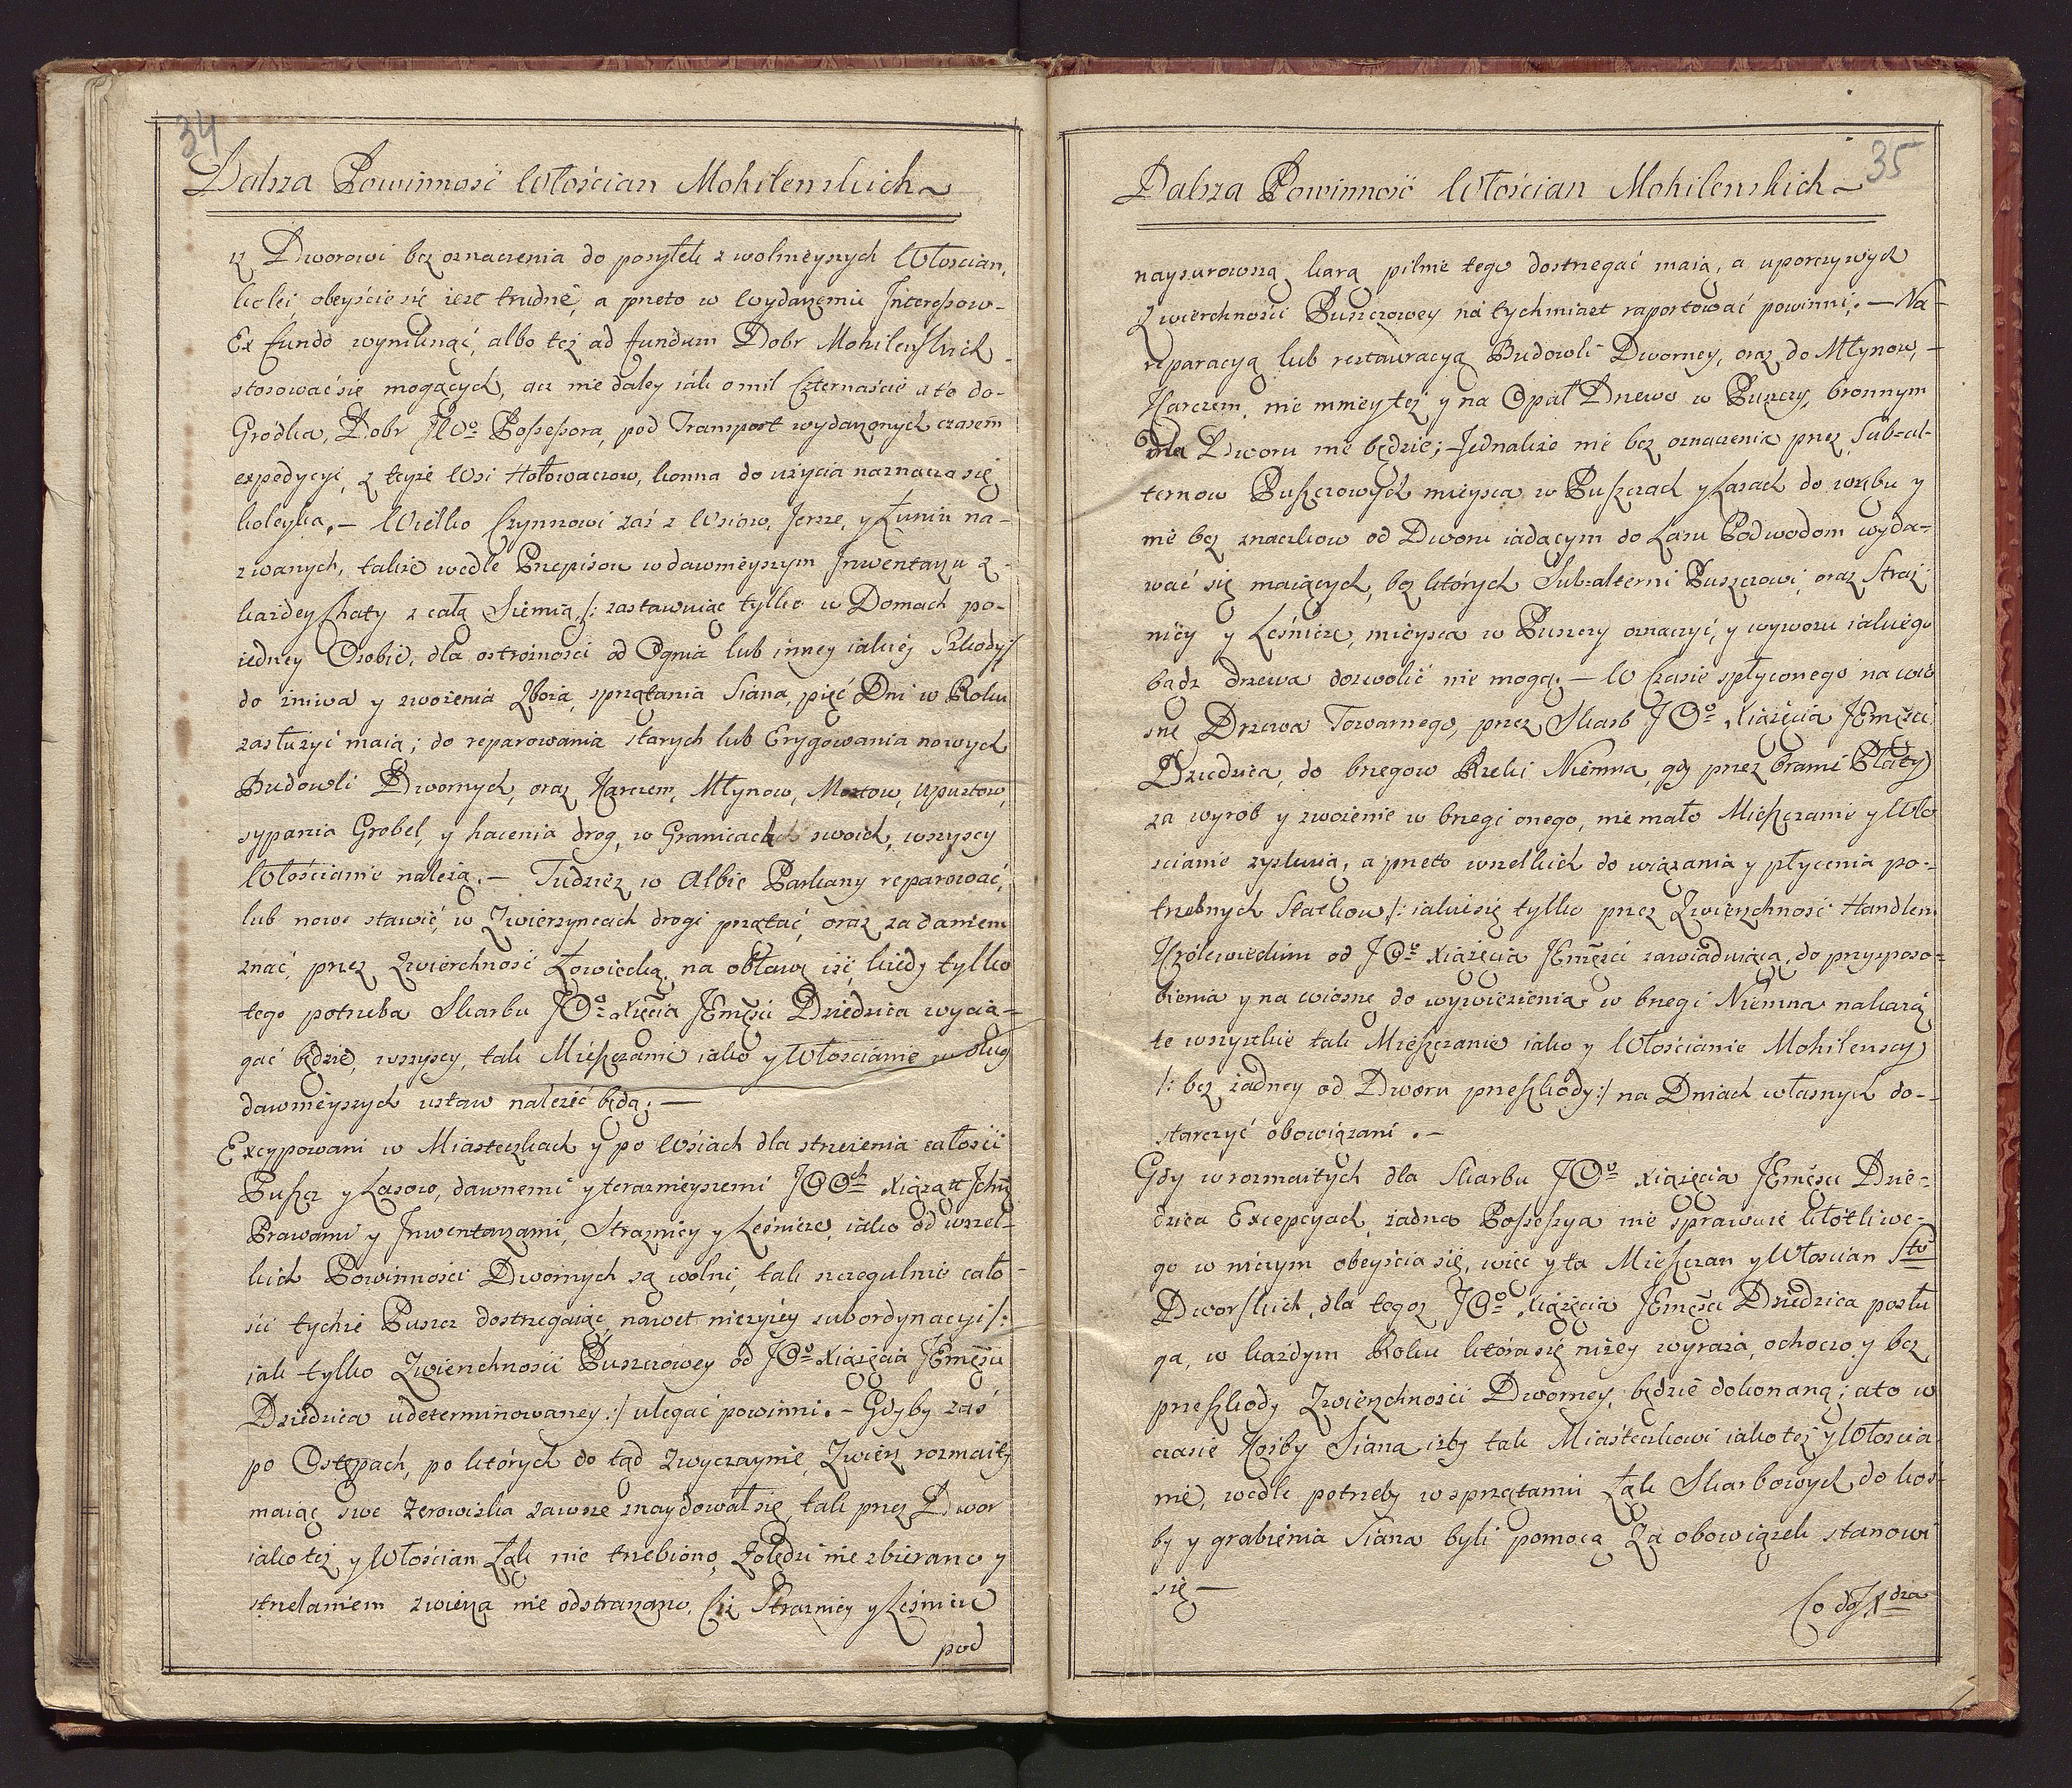 34
Dalsza Powinność Włościan Mohilenskich
iż Dworowi bez oznaczenia do posyłek z wolnieyszych Włoscian,
kolei, obeyście się iest trudné, a przeto w wydarzeniu Interessow-
Ex fundo wyniknąć, albo też ad fundum Dobr Mohilenskich
stosować się mogących, acz nie daley iak o mil Czternaście a to do-
Grodka, Dobr JWo Possessora, pod Transport wydarzonych czasem
expedycyi, z teyże Wsi Hołowaczow, konna do użycia naznacza się
koleyka. — Wielko Czynszowi zaś z Wsiow, Jersze, y Łunin na-
zwanych, także wedle Przepisow w dawnieyszym Inwentarzu z-
każdey Chaty z całą Siemią /: zastawuiąc tylko w Domach po-
iedney Osobie, dla ostrożnosci od Ognia lub inney iakiéy Szkody :/
do żniwa y zwożenia Zboża, sprzątania Siana, pięć Dni w Roku
zasłużyć maią; do reparowania starych lub Erygowania nowych
Budowli Dwornych, oraz Karczem, Młynow, Mostow, Upustow,
sypania Grobel, y hacenia drog, w Granicach swoich, wszyscy
Włościanie należą. — Tudzież w Albie Parkany reparować,
lub nowe stawić, w Zwierzyncach drogi prżątać, oraz za daniem
znać, przez Zwierchność Łowiecką, na obławę iść, kiedy tylko
tego potrzeba Skarbu JOo Xięcia JEmęści Dziedzica wycią-
gać będzie, wszyscy, tak Mieszczanie iako y Włoscianie w dług
dawnieyszych ustaw należeć będą; —
Excypowani w Miasteczkach y po Wsiach dla strzeżenia całości
Puszcz y Lasow, dawnemi y terazniéyszemi JOOch Xiążąt Ichm
Prawami y Inwentarzami, Straznicy y Leśnicze, iako od wszel-
kich Powinności Dwornych są wolni, tak szczegulnie cało-
ści tychże Puszcz dostrzegaiąc, nawet niczyiey subordynacyi /:
iak tylko Zwierzchności Puszczowey od JOo Xiążęcia JEmęści
Dziedzica udeterminowaney :/ ulegać powinni. — Gdyby zaś
po Ostępach, po których do tąd zwyczaynie, Zwierz rozmaity
maiąc swe żerowiska zawsze znaydował się, tak przez Dwor
iako też y Włościan Łąk nie trzebiono, żołędzi nie zbierano y
strzelaniem zwierza nie odstraszano, Ciż Straznicy y Leśnicze
pod
35
Dalsza Powinność Włościan Mohilenskich
naysurowszą karą pilnie tego dostrzegać maią, a uporczywych
Zwierchności Puszczowey na tychmiast raportować powinni; — Na-
reparacyą lub restauracyą Budowli Dworney, oraz do Młynow, —
Karczem, nie mniey też y na Opał Drzewo w Puszczy, bronnym
dla Dworu nie będzie; Jednakże nie bez oznaczenia przez Sub=al-
ternow Puszczowych mieysca w Puszczach y Lasach do wrębu y
nie bez znaczkow od Dworu iadącym do Lasu Podwodom wyda-
wać się maiących, bez których Sub=alterni Puszczowi, oraz Straż
nicy y Leśnicze, mieysca w Puszczy oznaczyć, y wywozu iakiego
bądz drzewa dozwolić nie mogą. — W Czasie spłyconego na wio
snę Drzewa Towarnego, przez Skarb JOo Xiążęcia JEmęści
Dziedzica, do brzegow Rzeki Niemna, gdy przez branie Płaty
za wyrob y zwożenie w brzegi onego, nie mało Mieszczanie y Wło
scianie zyskuią, a przeto wszelkich do wiązania y płycenia po-
trzebnych Statkow /: iakie się tylko przez Zwierzchność Handlem
Królewieckim od JOo Xiążęcia JEmęści zawiaduiącą, do przysposo-
bienia y na wiosnę do wywiezienia w brzegi Niemna nakażą
te wszystkie tak Mieszczanie iako y Włościanie Mohilenscy
/: bez żadney od Dworu przeszkody :/ na Dniach własnych do-
starczyć obowiązani. —
Gdy w rozmaitych dla Skarbu JOo Xiążęcia JEmęści Dzie-
dzica Excepcyach, żadna Possessya nie sprawuie kłótliwe-
go w niczym obeyścia się, wiec y ta Mieszczan y Włoscian Sto
Dworskich, dla tegoz JOo Xiążęcia JEmęści Dziedzica posłu
ga, w każdym Roku która się niżey wyraża, ochoczo y bez
przeszkody Zwierzchności Dworney, będzie dokonaną; a to w
czasie Kośby Siana izby tak Miasteczkowi iako też y Włoscia
nie, wedle potrzeby w sprzątaniu Łąk Skarbowych, do kos-
by y grabienia Siana byli pomocą Za obowiązek stanowi
się —